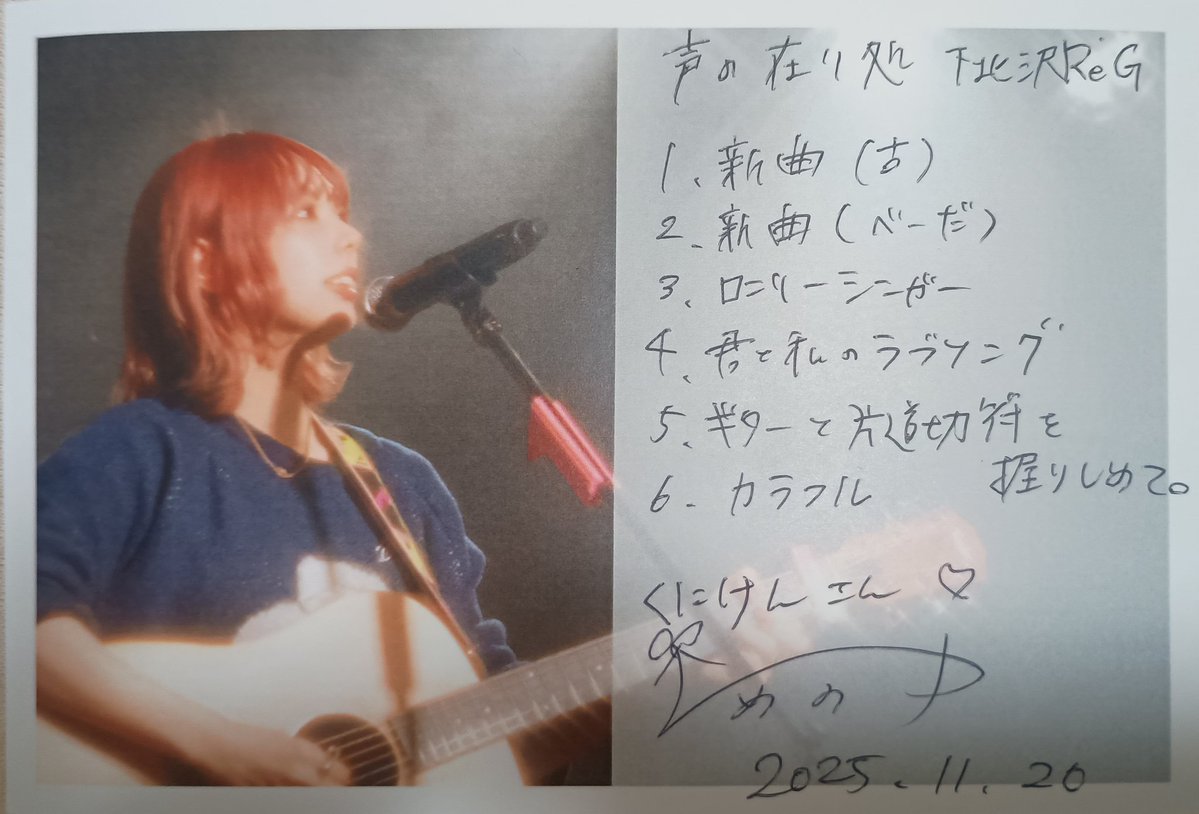 声の在り処 下北沢ReG
1. 新曲(古)
2. 新曲(べーだ)
3. ロンリーシンガー
4. 君と私のラブソング
5. ギターと片道切符を
握りしめて。
6. カラフル
くにけんさん♡
めの
2025.11.20